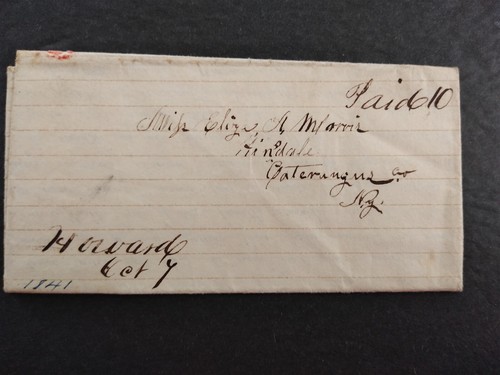 Paid 10
Miss Eliza A Marvin
Hinsdale
Cataraugus Co
N.y.
Howard
Oct 7
1841